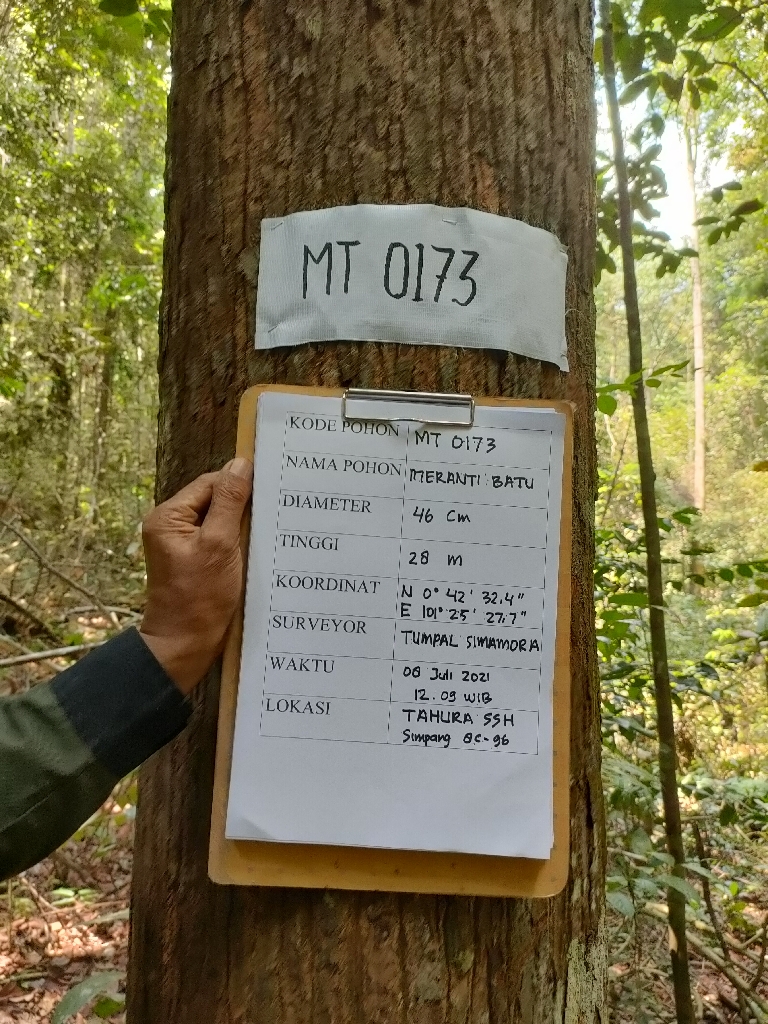 MT 0173
KODE POHON MT 0173
NAMA POHON MERANTI BATU
DIAMETER 46 Cm
TINGGI 28 m
KOORDINAT N 0° 42' 32.4"
E 101° 25' 27.7"
SURVEYOR TUMPAL SIMAMORA
WAKTU 06 Juli 2021
12.09 WIB
LOKASI TAHURA SSH
Simpang